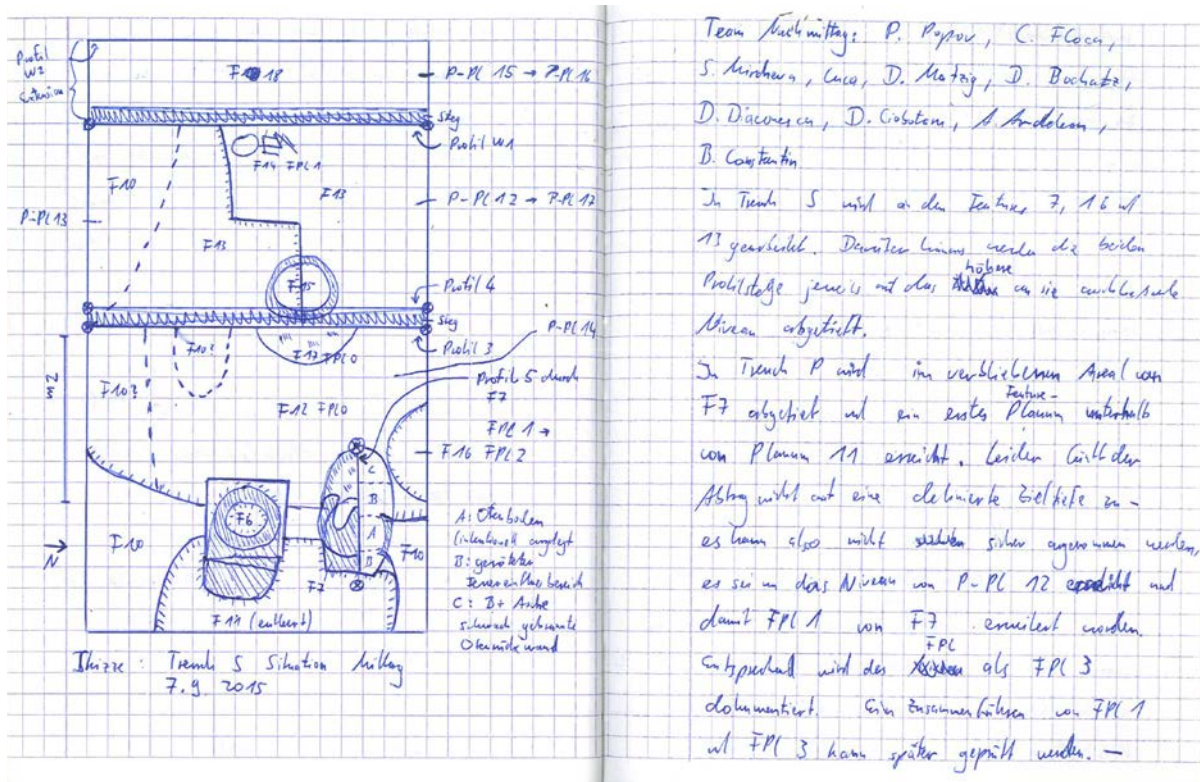 Profil
W2
Extension
F 18
P-PL 15 → P-PL 16
Steg
Profil W1
F14 FPL 1
F10
F13
P-PL 12 → P-PL 17
P-PL 13
F13
F15
Profil 4
Steg
Profil 3
P-PL 14
F10?
F17 FPL0
F10?
2m
Profil 5 durch
F7
FPL 1 →
F12 FPL0
F16 FPL 2
C
B
A
B
F6
F10
F10
F7
N
A: Ofenboden
(intentionell angelegt
B: geröteter
Feuereinflussbereich
C: B + Asche
schwach gebrannte
F11 (entleert)
Skizze: Trench S Situation Mittag
7.9.2015
Team Nachmittag: P. Popov, C. Floca,
S. Mirchera, Luca, D. Matzig, D. Bochatz,
D. Diaconescu, D. Ciobotaru, A.
B. Constantin
In Trench S wird an den Features 7, 16 und
13 gearbeitet. Darüber hinaus werden die beiden
Profilstege jeweils auf das höhere an sie anschließende
Niveau abgetieft.
In Trench P wird im verbliebenen Areal von
F7 abgetieft und ein erstes Feature-Planum unterhalb
von Planum 11 erreicht. Leider läuft der
Abtrag nicht auf eine definierte Zieltiefe zu -
es kann also nicht sicher angenommen werden,
es sei um das Niveau von P-PL 12 erreicht und
damit FPL 1 von F7 erweitert worden.
Entsprechend wird das FPL als FPL 3
dokumentiert. Ein Zusammenführen von FPL 1
und FPL 3 kann später geprüft werden. —